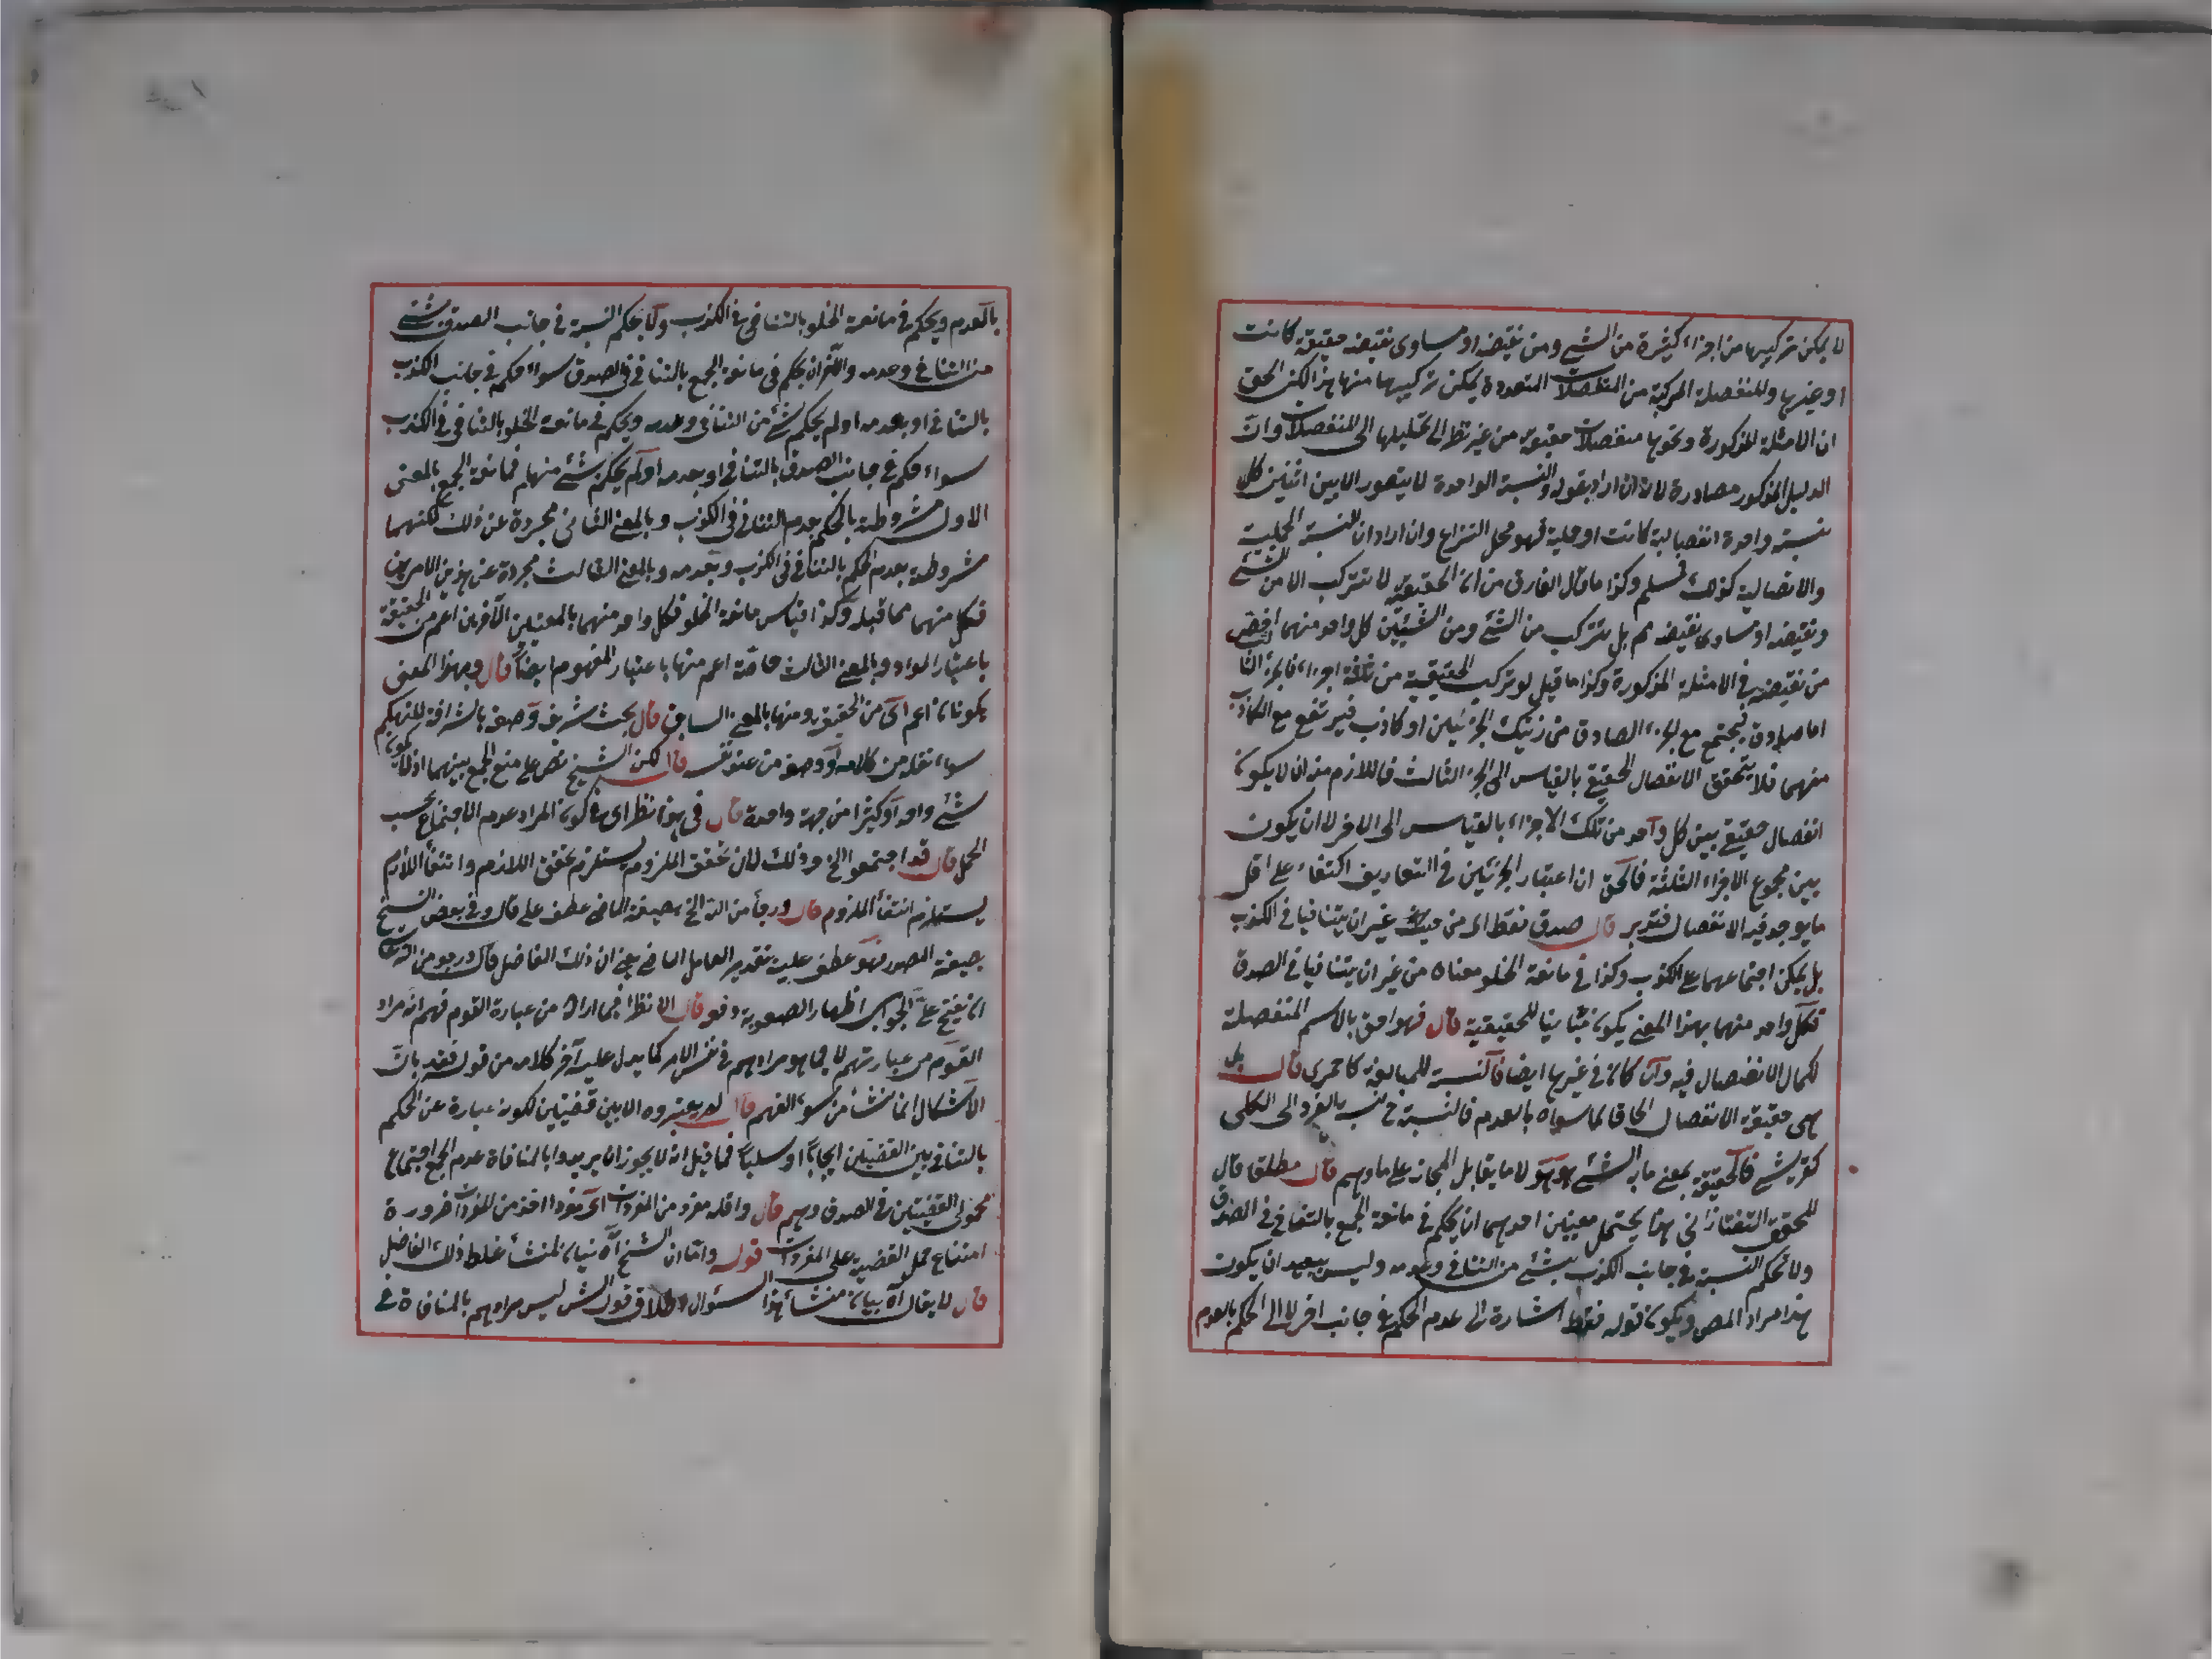 لا يمكن تركيبها من اجزاء كثيرة من الشئ ومن نقيضه او مساوى نقيضه حقيقة كانت
او غيرها والمنفصلة المركبة من المنفصلات المتعددة يمكن تركيبها منها هذا لكن الحق
ان الامثلة المذكورة ونحوها منفصلات حقيقية من غير نظر الى تحليلها الى المنفصلات وان
الدليل المذكور مصادرة لانه ان اراد بقوله والنسبة الواحدة لا يتصور الا بين اثنين كل
نسبة واحدة انفصالية كانت او حملية فهو محل النزاع وان اراد ان النسبة الحملية
والاتصالية كذلك فمسلم وكذا ما قال الفارق من ان الحقيقية لا تتركب الا من الشئ
ونقيضه او مساوى نقيضه مم بل تتركب من الشئ ومن الشيئين كل واحد منهما اخص
من نقيضه في الامثلة المذكورة وكذا ما قيل لو تركب الحقيقية من ثلثة اجزاء فالجزء الثا
اما صادق فيجتمع مع الجزء الصادق من ذينك الجزئين او كاذب فيرتفع مع الكاذب
منهما فلا يتحقق الانفصال الحقيقي بالقياس الى الجزء الثالث فاللازم منه ان لا يكون
انفصال حقيقي بين كل واحد من تلك الاجزاء بالقياس الى الاخر لا ان يكون
بين مجموع الاجزاء الثلثة فالحق ان اعتبار الجزئين في التعاريف اكتفاء على اقل
ما يوجد فيه الانفصال فتدبر قال صدق فقط اى من حيث غير ان يتنافيا في الكذب
بل يمكن اجتماعهما على الكذب وكذا في مانعة الخلو معناه من غير ان يتنافيا في الصدق
فكل واحد منهما بهذا المعنى يكون مباينا للحقيقية قال فهو احق بالاسم المنفصلة
لكمال الانفصال فيه وان كان في غيرها ايضا فالنسبة للمبالغة كاحمرى قال بل
هى حقيقة الانفصال الحاقا لما سواه بالعدم فالنسبة ح نسبة الفرد الى الكلى
كقريشى فالحقيقة بمعنى ما به الشئ هو هو لا ما يقابل المجاز على ما وهم قال مطلقا قال
المحقق التفتازانى هذا يحتمل معنيين احدهما ان يحكم في مانعة الجمع بالتنافى في الصدق
ولا تحكم النسبة في جانب الكذب بشئ من التنافى وعدمه وليس ببعيد ان يكون
هذا مراد المص ويكون قوله فقط اشارة الى عدم الحكم في جانب اخر لا الى الحكم بالعدم
بالعدم ويحكم في مانعة الخلو بالتنافى في الكذب ولا يحكم النسبة في جانب الصدق بشئ
من التنافى وعدمه والآخر ان يحكم في مانعة الجمع بالتنافى في الصدق سواء حكم في جانب الكذب
بالتنافى او بعدمه او لم يحكم بشئ من التنافى وعدمه ويحكم في مانعة الخلو بالتنافى في الكذب
سواء حكم في جانب الصدق بالتنافى او بعدمه او لم يحكم بشئ منهما فمانعة الجمع بالمعنى
الاول مشروطة بالحكم بعدم التنافى في الكذب وبالمعنى الثانى مجردة عن ذلك لكنهما
مشروطة بعدم الحكم بالتنافى في الكذب وبعدمه وبالمعنى الثالث مجردة عن هذين الامرين
فكل منهما مما قبله وكذا قياس مانعة الخلو فكل واحد منهما بالمعنيين الآخرين اعم من الحقيقية
باعتبار المواد وبالمعنى الثالث خاصة اعم منها باعتبار المفهوم ايضا قال وبهذا المعنى
يكونان اعم اى من الحقيقية ومنها بالمعنى السابق قال بحث شريف وصفه بالشرافة للتهكم
سواء نقله من كلامه او وصفه من عند نفسه قال لكن الشيخ نص على منع الجمع بينهما اذ لا كون
شئ واحدا وكثيرا من جهة واحدة قال في هذا نظر اى في كون المراد عدم الاجتماع بحسب
الحمل قال قد اجتمعوا الخ وذلك لان تحقق الملزوم يستلزم تحقق اللازم وانتفاء اللازم
يستلزم انتفاء الملزوم قال ورجأ من الله الخ بصيغة الماضى عطف على قال وفي بعض النسخ
بصيغة المصدر فهو عطف عليه بتقدير العامل الماضى يعنى ان ذلك الفاضل قال ورجو من الله تعا
ان يفتح على الجواب اظهار الصعوبة دفعه قال الا نظرا فيما اراد من عبارة القوم فهم انه مراد
القوم من عبارتهم لا فيما هو مرادهم في نفس الامر كما يدل عليه آخر كلامه من قوله فقد بان
الاشكال انما نشأ من سوء الفهم قال لم يعتبروه الا بين قضيتين لكونه عبارة عن الحكم
بالتنافى بين القضيتين ايجابا او سلبا فما قيل انه لا يجوز ان يريدوا بالمنافاة عدم الجمع اجتماع
محمولى القضيتين في الصدق وهم قال واقله مفرد من المفردات اى مفردا اخذ من المفردات ضرورة
امتناع حمل القضية على المفردات قوله واما ان الشيخ آه بيان لمنشأ غلط ذلك الفاضل
قال لا يقال آه بيان منشأ هذا السؤال اطلاق قول الش ليس مرادهم بالمنافاة في